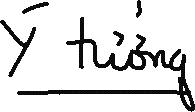 Ý tưởng